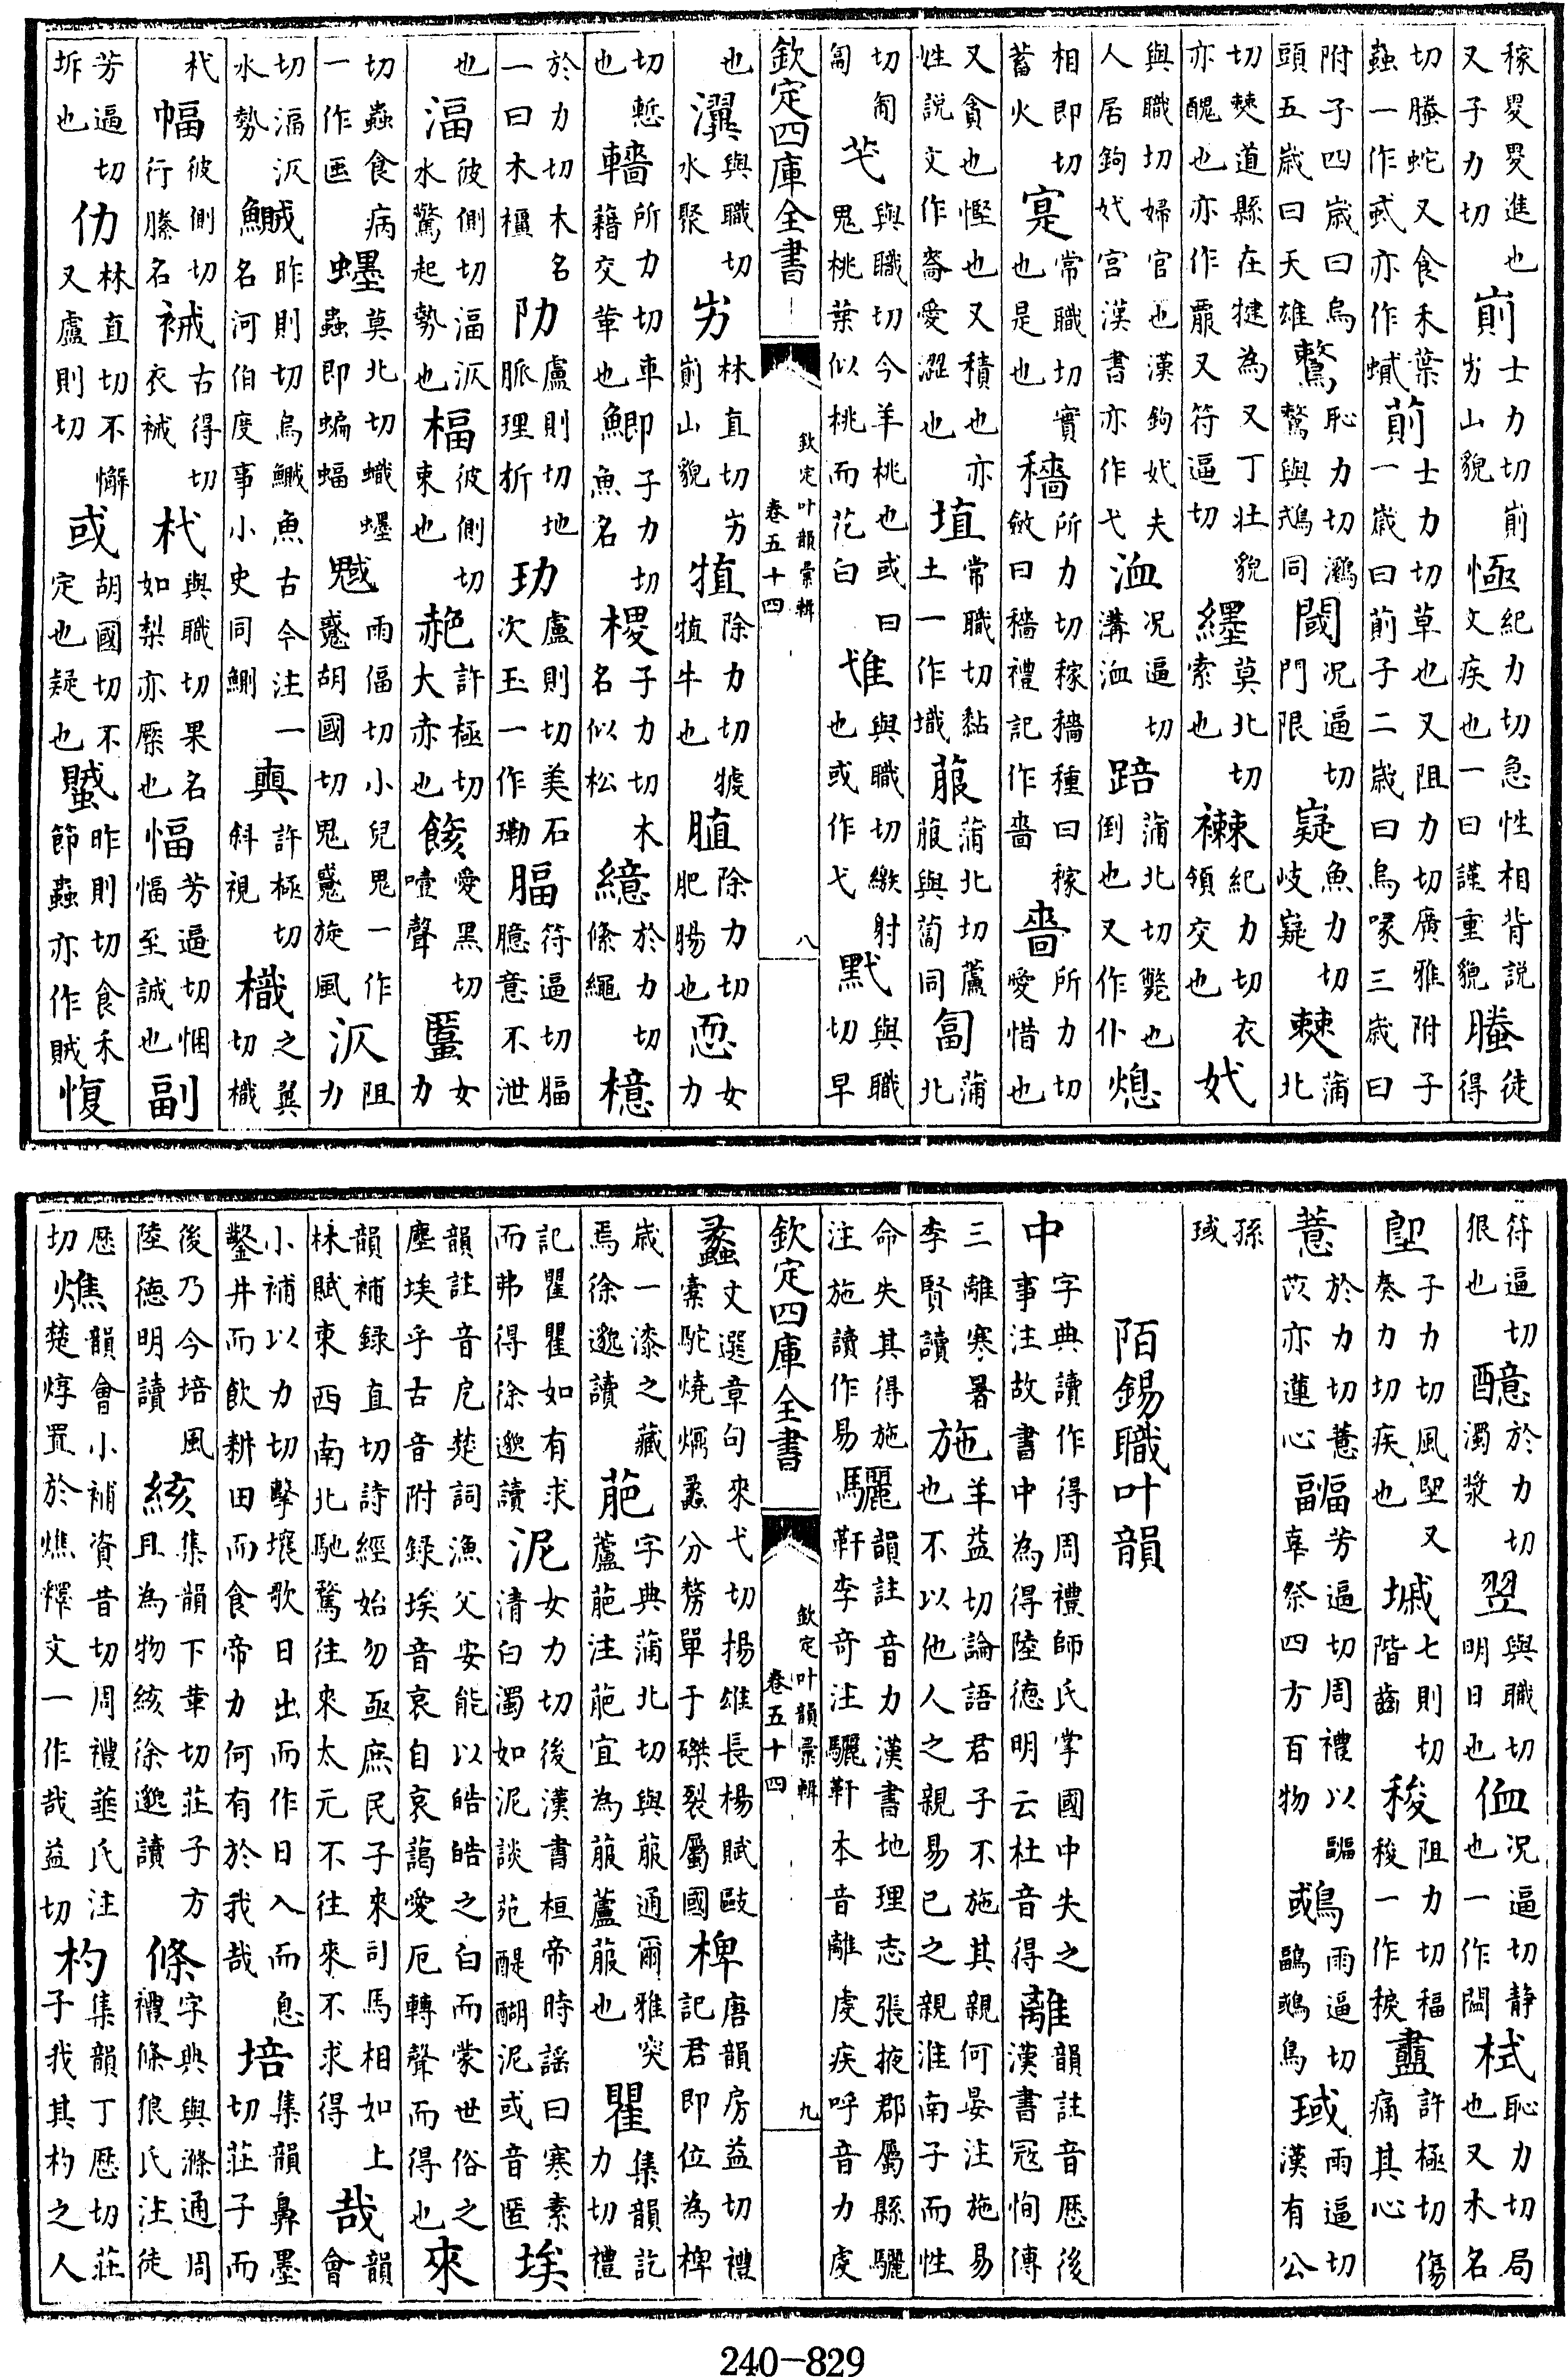 稼畟畟進也又子力切崱士力切崱屴山貌㥛紀力切急性相背説文疾也一曰謹重貌螣徒得
切螣蛇又食禾葉蟲一作亦作蟘萴士力切草也又阻力切廣雅附子一歲曰萴子二歲曰烏喙三歲曰
附子四歲曰烏頭五歲曰天雄鷘恥力切鸂鷘與鶒同閾况逼切門限嶷魚力切岐嶷僰蒲北
切僰道縣在犍為又丁壯貌亦醜也亦作又符逼切纆莫北切索也襋紀力切衣領交也㚤
與職切婦官也漢鉤㚤夫人居鉤㚤宮漢書亦作弋洫况逼切溝洫踣蒲北切斃也倒也又作仆熄
相即切蓄火寔常職切實也是也穡所力切稼穡種曰稼斂曰穡禮記作嗇嗇所力切愛惜也
又貪也慳也又積也亦姓説文作嗇愛濇也埴常職切黏土一作墭菔蒲北切蘆菔與蔔同匐蒲北
切匍匐芅與職切今羊桃也或曰鬼桃葉似桃而花白隿與職切繳射也或作弋黓與職切早
欽定四庫全書 欽定叶韻彙輯 卷五十四 八
也瀷與職切水聚屴林直切屴崱山貌犆除力切犆牛也䐈除力切肥腸也恧女力
切慙也轖所力切車藉交革也鯽子力切魚名㮨子力切木名似松繶於力切絛繩檍
於力切木名一曰木橿阞盧則切地脈理析玏盧則切美石次玉一作㻋腷符逼切腷臆意不泄
也湢彼側切湢汳水驚起勢也楅彼側切束也赩許極切大赤也餩愛黑切噎聲䘌女力
切蟲食病一作蟔莫北切蟙蟔蟲即蝙蝠魊雨逼切小兒鬼一作胡國切鬼旋風汳阻力
切湢汳水勢鱡昨則切烏鱡魚古今注一名河伯度事小史同鰂奭許極切斜視樴之翼切樴
杙幅彼側切行縢名裓古得切衣裓杙與職切果名如梨亦橜也愊芳逼切悃愊至誠也副
芳逼切坼也仂林直切不懈又盧則切或胡國切不定也疑也蠈昨則切食禾節蟲亦作賊愎
符逼切狠也醷於力切濁漿翌與職切明日也侐况逼切静也一作閟栻恥力切局也又木名
堲子力切風堲又奏力切疾也墄七則切階齒稄阻力切稄一作稫衋許極切傷痛其心
薏於力切薏苡亦蓮心疈芳逼切周禮以疈辜祭四方百物䴑雨逼切鷗䴑鳥琙雨逼切漢有公
孫琙
陌錫職叶韻
中字典讀作得周禮師氏掌國中失之事注故書中為得陸德明云杜音得離韻註音歷後漢書寇恂傳
三離寒暑李賢讀施羊益切論語君子不施其親何晏注施易也不以他人之親易己之親淮南子而性
命失其得施注施讀作易驪韻註音力漢書地理志張掖郡屬縣驪靬李奇注驪靬本音離虔疾呼音力虔
欽定四庫全書 欽定叶韻彙輯 卷五十四 九
蠡文選章句來弋切揚雄長楊賦敺橐駝燒熐蠡分剺單于磔裂屬國椑唐韻房益切禮記君即位為椑
歲一漆之藏焉徐邈讀萉字典蒲北切與菔通爾雅突蘆萉注萉宜為菔蘆菔也瞿集韻訖力切禮
記瞿瞿如有求而弗得徐邈讀泥女力切後漢書桓帝時謡曰寒素清白濁如泥談苑醍醐泥或音匿埃
韻註音戹楚詞漁父安能以皓皓之白而蒙世俗之塵埃乎古音附録埃音哀自哀藹愛厄轉聲而得也來
韻補録直切詩經始勿亟庶民子來司馬相如上林賦東西南北馳騖往來太元不往來不求得哉韻會
小補以力切擊壤歌日出而作日入而息鑿井而飲耕田而食帝力何有於我哉培集韻鼻墨切莊子而
後乃今培風陸德明讀絯集韻下革切莊子方且為物絯徐邈讀條字典與滌通周禮條狼氏注徒
歷切燋韻會小補資昔切周禮菙氏注楚焞置於燋釋文一作哉益切杓集韻丁歷切莊子我其杓之人
240-829